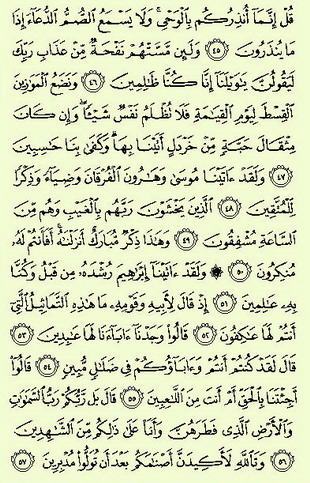 قُلْ إِنَّمَآ أُنذِرُكُم بِٱلْوَحْىِ ۚ وَلَا يَسْمَعُ ٱلصُّمُّ ٱلدُّعَآءَ إِذَا
مَا يُنذَرُونَ ﴿٤٥﴾ وَلَئِن مَّسَّتْهُمْ نَفْحَةٌ مِّنْ عَذَابِ رَبِّكَ
لَيَقُولُنَّ يَٰوَيْلَنَآ إِنَّا كُنَّا ظَٰلِمِينَ ﴿٤٦﴾ وَنَضَعُ ٱلْمَوَٰزِينَ
ٱلْقِسْطَ لِيَوْمِ ٱلْقِيَٰمَةِ فَلَا تُظْلَمُ نَفْسٌ شَيْـًٔا ۖ وَإِن كَانَ
مِثْقَالَ حَبَّةٍ مِّنْ خَرْدَلٍ أَتَيْنَا بِهَا ۗ وَكَفَىٰ بِنَا حَٰسِبِينَ
﴿٤٧﴾ وَلَقَدْ ءَاتَيْنَا مُوسَىٰ وَهَٰرُونَ ٱلْفُرْقَانَ وَضِيَآءً وَذِكْرًا
لِّلْمُتَّقِينَ ﴿٤٨﴾ ٱلَّذِينَ يَخْشَوْنَ رَبَّهُم بِٱلْغَيْبِ وَهُم مِّنَ
ٱلسَّاعَةِ مُشْفِقُونَ ﴿٤٩﴾ وَهَٰذَا ذِكْرٌ مُّبَارَكٌ أَنزَلْنَٰهُ ۚ أَفَأَنتُمْ لَهُۥ
مُنكِرُونَ ﴿٥٠﴾ ۞ وَلَقَدْ ءَاتَيْنَآ إِبْرَٰهِيمَ رُشْدَهُۥ مِن قَبْلُ وَكُنَّا
بِهِۦ عَٰلِمِينَ ﴿٥١﴾ إِذْ قَالَ لِأَبِيهِ وَقَوْمِهِۦ مَا هَٰذِهِ ٱلتَّمَاثِيلُ ٱلَّتِىٓ
أَنتُمْ لَهَا عَٰكِفُونَ ﴿٥٢﴾ قَالُوا۟ وَجَدْنَآ ءَابَآءَنَا لَهَا عَٰبِدِينَ ﴿٥٣﴾
قَالَ لَقَدْ كُنتُمْ أَنتُمْ وَءَابَآؤُكُمْ فِى ضَلَٰلٍ مُّبِينٍ ﴿٥٤﴾ قَالُوٓا۟
أَجِئْتَنَا بِٱلْحَقِّ أَمْ أَنتَ مِنَ ٱللَّٰعِبِينَ ﴿٥٥﴾ قَالَ بَل رَّبُّكُمْ رَبُّ ٱلسَّمَٰوَٰتِ
وَٱلْأَرْضِ ٱلَّذِى فَطَرَهُنَّ وَأَنَا۠ عَلَىٰ ذَٰلِكُم مِّنَ ٱلشَّٰهِدِينَ
﴿٥٦﴾ وَتَٱللَّهِ لَأَكِيدَنَّ أَصْنَٰمَكُم بَعْدَ أَن تُوَلُّوا۟ مُدْبِرِينَ ﴿٥٧﴾